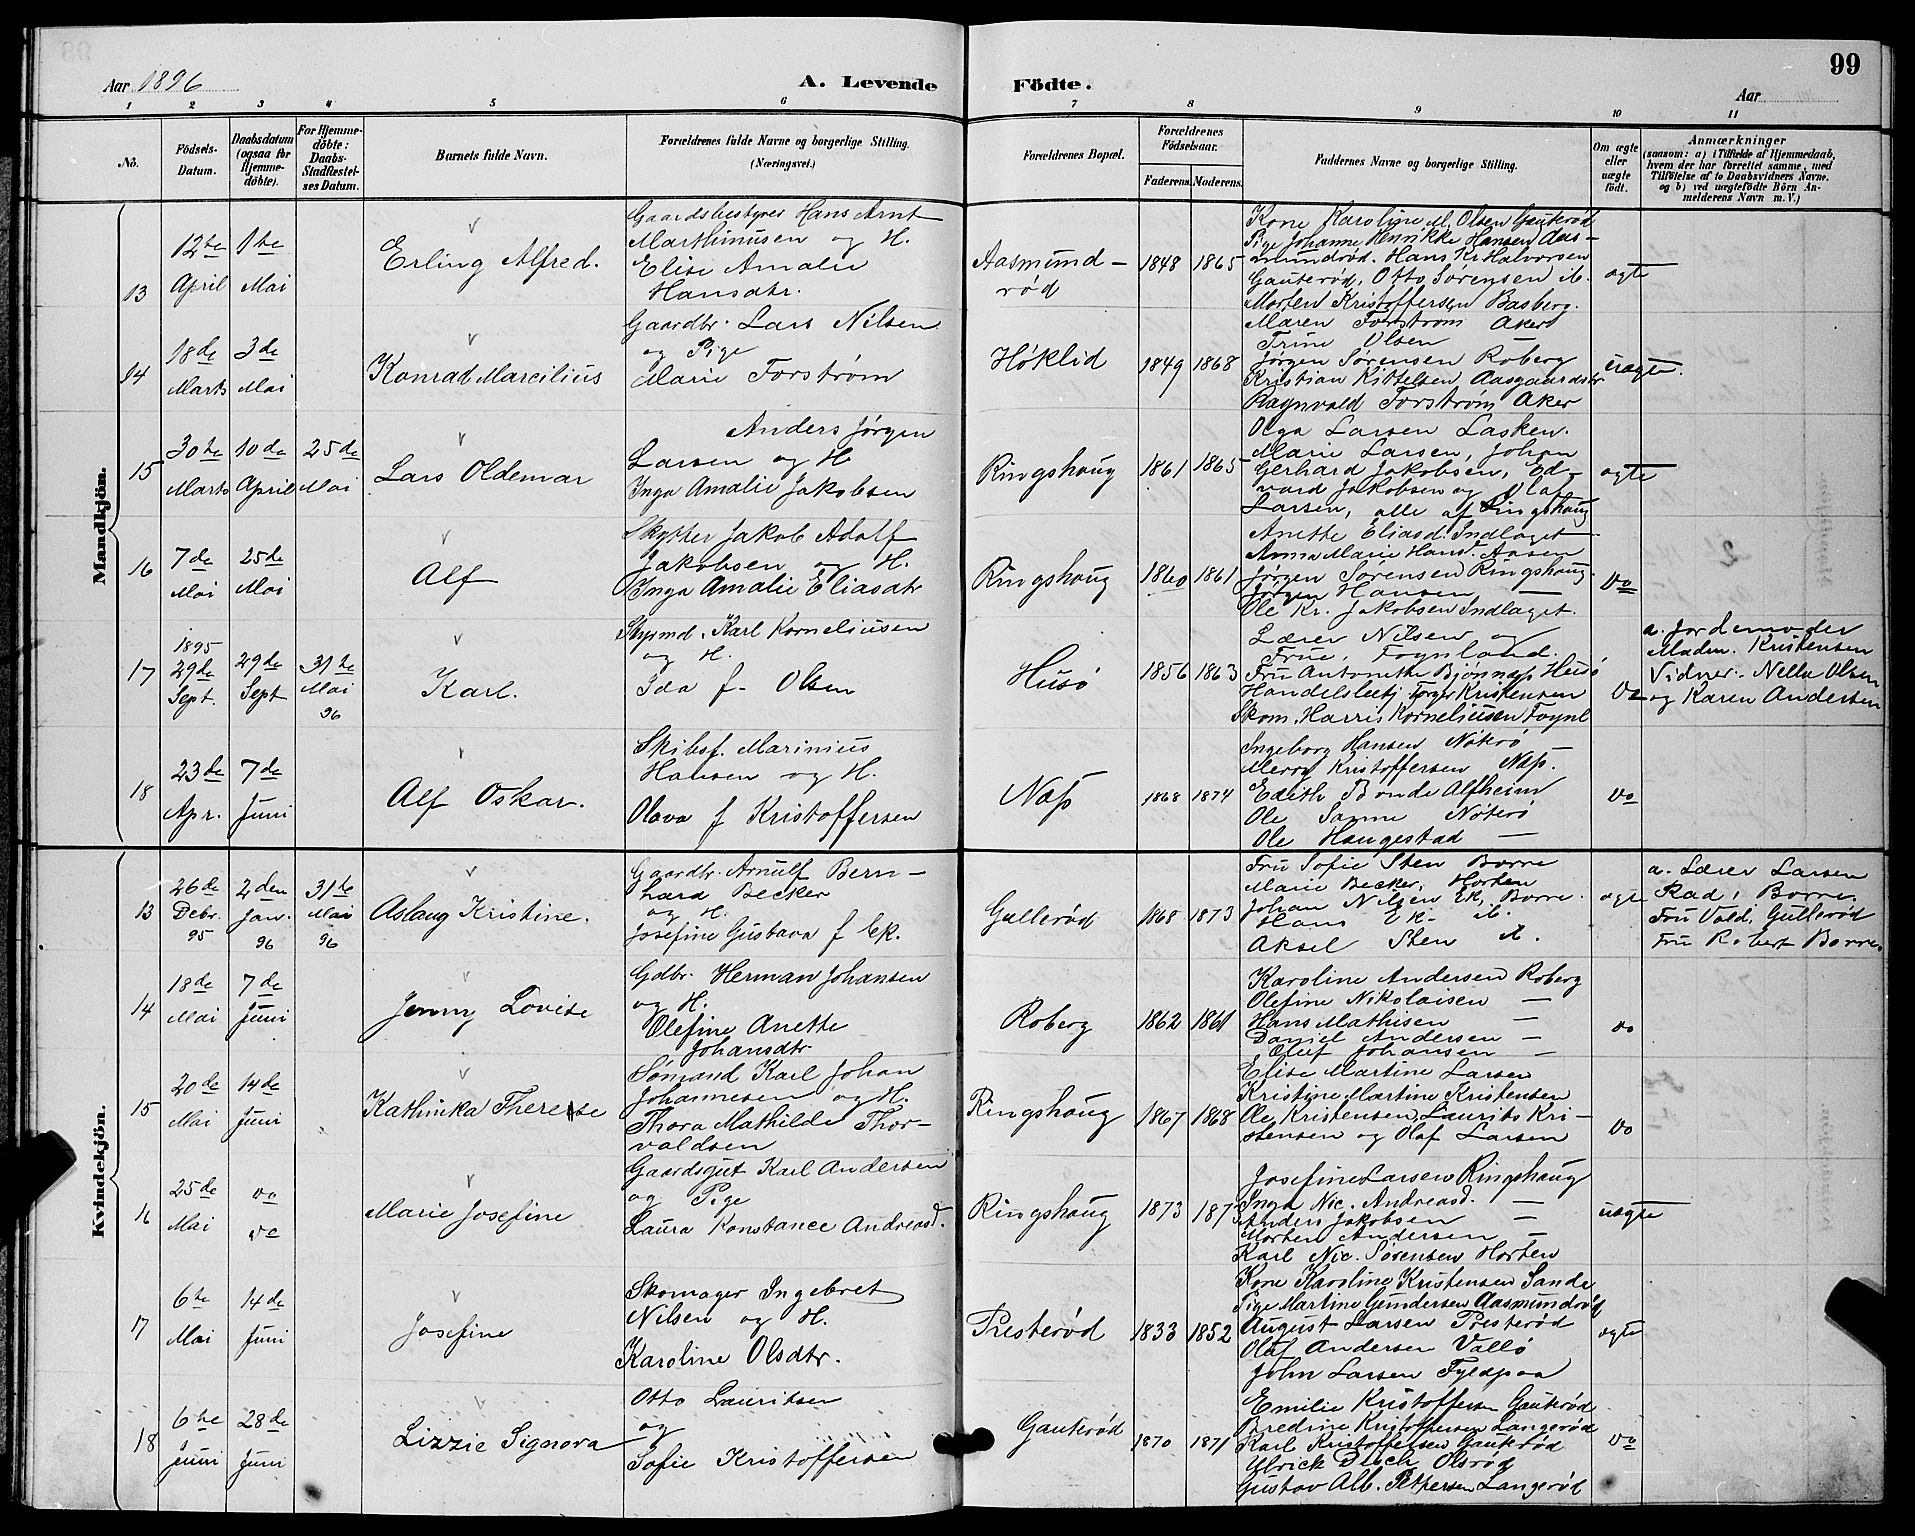 99
Aar 1896
A. Levende Födte.
Aar
1 2 3 4 5 6 7 8 9 10 11
No.
Födsels-Datum.
Daabsdatum (ogsaa for Hjemme-döbte).
For Hjemme-döbte: Daabs-Stadfæstel-ses Datum.
Barnets fulde Navn.
Forældrenes fulde Navne og borgerlige Stilling. (Næringsvei.)
Forældrenes Bopæl.
Forældrenes Födselsaar.
Faderens. Moderens.
Faddernes Navne og borgerlige Stilling.
Om ægte eller uægte født.
Anmærkninger
(saasom: a) i Tilfælde af Hjemmedaab,
hvem der har forrettet samme, med
Tilföielse af to Daabsvidners Navne.
og b) ved uægtefödte Börn An-
melderens Navn m. V.)
Mandkjön.
13
12te April
1te Mai
Erling Alfred.
Gaardsbestyrer Hans Arnt
Marthinusen og H.
Elise Amalie
Hansdtr.
Aasmund-
rød
1848 1865
Kone Karoline M. Olsen Gauterød
Pige Johanne Henrikke Hansen Aas-
mundrød. Hans Kr. Halvorsen
Gauterød, Otto Sørensen ib.
Morten Kristoffersen Basberg.
ægte
14
18de Marts
3de Mai
Konrad Marcilius
Gaardbr. Lars Nilsen
og Pige
Marie Forstrøm
Høklid
1849 1868
Maren Forstrøm Aker
Trine Olsen
Jørgen Sørensen Roberg
Kristian Kittelsen Aasgaardstr
Ragnvald Forstrøm Aker
uægte.
15
30te Marts
10de April
25de Mai
Lars Oldemar
Anders Jørgen
Larsen og H
Inga Amalie Jakobsen
Ringshaug
1861 1865
Olga Larsen Lasken.
Marie Larsen, Johan
Gerhard Jakobsen, Ed-
vard Jakobsen og Olaf
Larsen, alle af Ringshaug
ægte
16
7de Mai
25de Mai
Alf
Skytter Jakob Adolf
Jakobsen og H.
Inga Amalie Eliasdtr
Ringshaug
1860 1861
Anette Eliasd. Indlaget
Anna Marie Hansd. Aasen
Jørgen Sørensen Ringshaug
Jørgen Hansen —
Ole Kr. Jakobsen Indlaget.
do
17
1895
29de Sept.
29de Sept
31te Mai 96
Karl.
Styrmd. Karl Korneliusen
og H.
Ida f. Olsen
Husö
1856 1863
Lærer Nilsen og
Frue, Foynland.
Fru Antonette Bjønnes Husö
Handelsbetj. Torger Kristensen
Skom. Harris Korneliusen Foynl
do
a. Jordemoder
Madm. Kristensen
Vidner. Nella Olsen
og Karen Andersen
18
23de Apr.
7de Juni
Alf Oskar.
Skibsf. Marinius
Hansen og H.
Olava f Kristoffersen
Næs
1868 1874
Ingeborg Hansen Nøterö
Merry Kristoffersen Næs.
Edith Bonde Alfheim
Ole Sanne Nøterö
Ole Haugestad —
do
Kvindekjön.
13
26de Debr. 95
2den Jan. 96
31te Mai 96
Aslaug Kristine.
Gaardbr. Arnulf Bern-
hard Becker
og H.
Josefine Gustava f Ek.
Gullerød
1868 1873
Fru Sofie Sten Borre
Marie Becker, Horten
Johan Nilsen Ek, Borre.
Hans Ek ib.
Aksel Sten ib.
ægte
a. Lærer Larsen
Rad, Borre.
Fru Vold, Gullerød
Fru Robert Borre.
14
18de Mai
7de Juni
Jenny Lovise
Gdbr. Herman Johansen
og H.
Olefine Anette
Johansdtr
Roberg
1862 1861
Karoline Andersen Roberg
Olefine Nikolaisen —
Hans Mathisen —
Daniel Andersen —
Oluf Johansen —
do
15
20de Mai
14de Juni
Kathinka Therese
Sømand Karl Johan
Johannesen og H.
Thora Mathilde Thor-
valdsen
Ringshaug
1867 1868
Elise Martine Larsen
Kristine Martine Kristensen
Ole Kristensen, Laurits Kri-
stensen og Olaf Larsen
do
16
25de Mai
do do
Marie Josefine
Gaardsgut Karl Andersen
og Pige
Laura Konstance Andreasd.
Ringshaug
1873 187
Josefine Larsen Ringshaug
Inga Nic. Andreasd. —
Anders Jakobsen —
Morten Andersen —
Karl Nic. Sørensen Horten
uægte
17
6te Mai
14de Juni
Josefine
Skomager Ingebret
Nilsen og H.
Karoline Olsdtr.
Presterød
1833 1852
Kone Karoline Kristensen Sande
Pige Martine Gundersen Aasmundrød
August Larsen Presterød
Olaf Andersen Vallö
John Larsen Fyldpaa
ægte
18
6te Juni
28de Juni
Lizzie Signora
Otto Lauritsen
og
Sofie Kristoffersen
Gauterød
1870 1871
Emilie Kristoffersen Gauterød
Bredine Kristoffersen Langerød
Karl Kristoffersen Gauterød
Ulrick Disch Olsrød
Gustav Alb. Pettersen Langerød
do